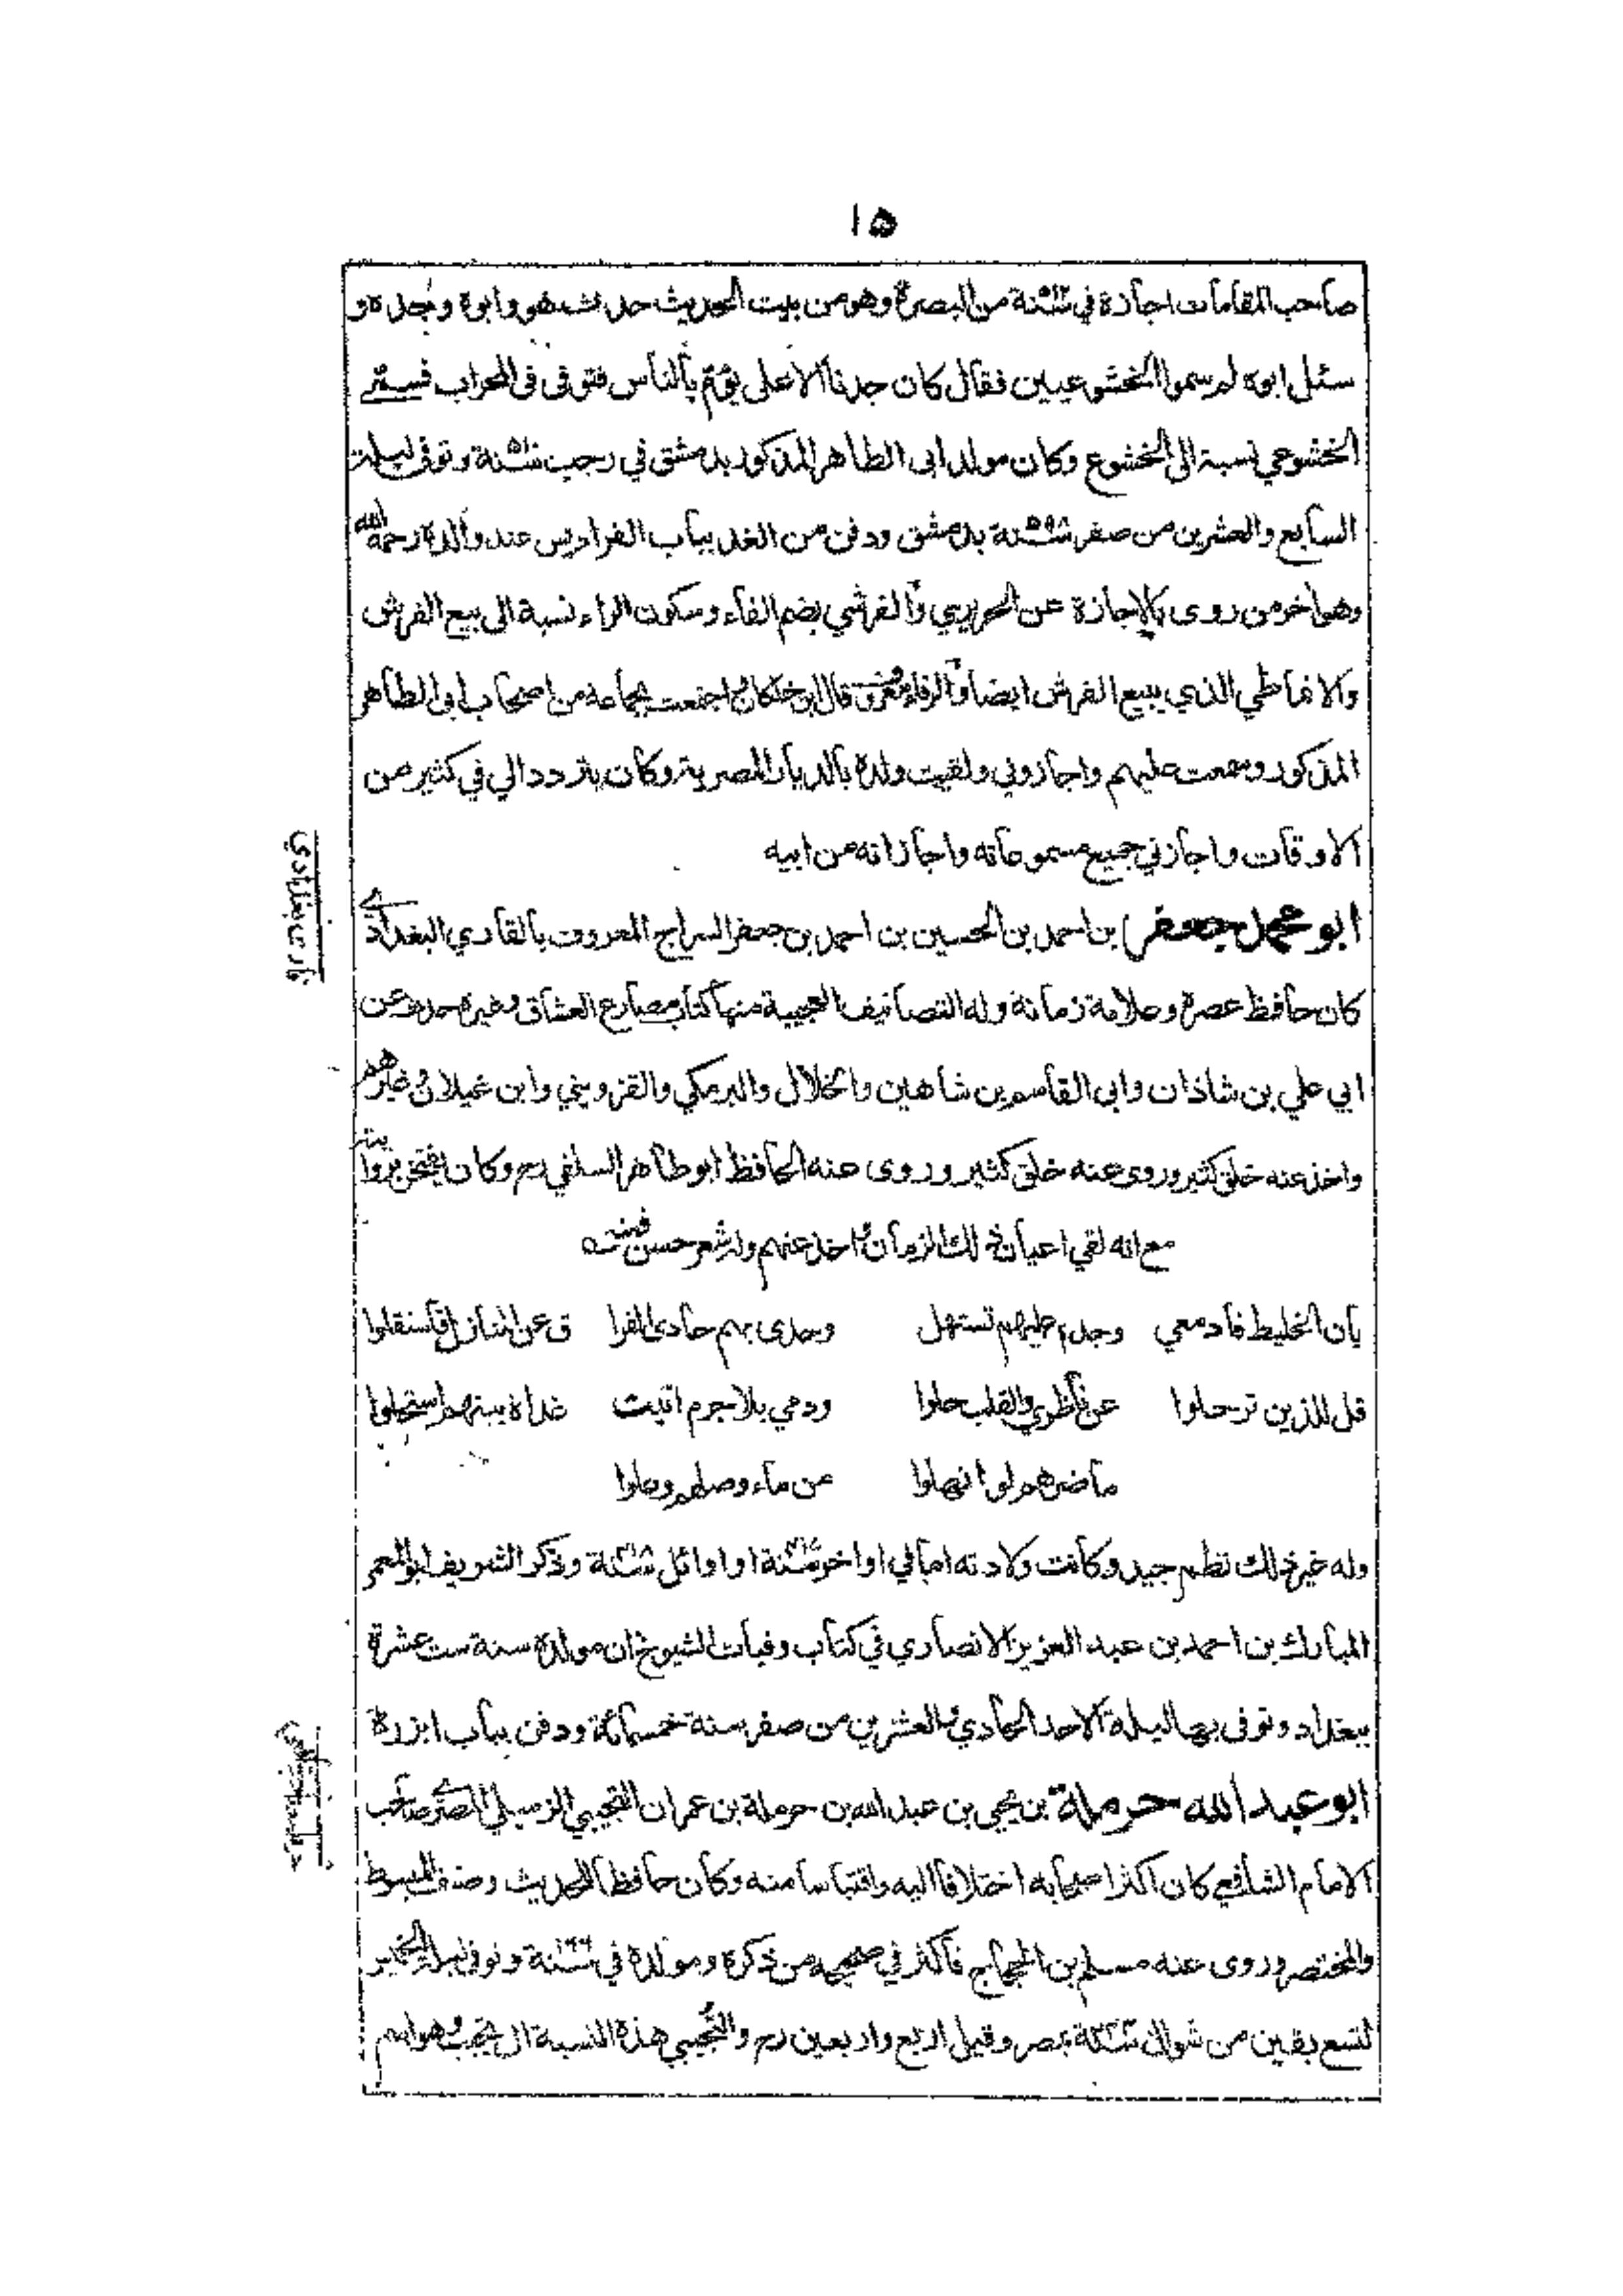 ١٥
صاحب المقامات اجازة في سنة من البصرة وهو من بيت الحديث حدث هو وابوه وجده و
سئل ابوه لم سموا الخشوعيين فقال كان جدنا الاعلى يؤم بالناس فتوفى فى المحراب فسمّي
الخشوعي نسبة الى الخشوع وكان مولد ابى الطاهر المذكور بدمشق في رجب سنة وتوفى ليلة
السابع والعشرين من صفر سنة بدمشق ودفن من الغد بباب الفراديس عند والده رحمه الله
وهو اخر من روى بالاجازة عن الحريري والفرشي بضم الفاء وسكون الراء نسبة الى بيع الفرش
والانماطي الذي يبيع الفرش ايضا والرفاء معروف قال ابن خلكان اجتمعت بجماعة من اصحاب ابى الطاهر
المذكور وسمعت عليهم واجازوني ولقيت ولده بالديار المصرية وكان يتردد الي في كثير من
الاوقات واجازني جميع مسموعاته واجازاته من ابيه
ابو محمد جعفر بن احمد بن الحسين بن احمد بن جعفر السراج المعروف بالقاري البغدادي
قاري بغدادي
كان حافظ عصره وعلامة زمانه وله التصانيف العجيبة منها كتاب مصارع العشاق وغيره حدث عن
ابي علي بن شاذان وابى القاسم بن شاهين والخلال والبرمكي والقزويني وابن غيلان وغيرهم
واخذ عنه خلق كثير وروى عنه خلق كثير وروى عنه الحافظ ابو طاهر السلفي رح وكان يفتخر بروايته
مع انه لقي اعيان ذلك الزمان واخذ عنهم وله شعر حسن فمنه
بان الخليط فادمعي وجدا عليهم تستهل وحدى بهم حادى الفرا ق عن المنازل فاستقلوا
قل للذين ترحلوا عن ناظري والقلب حلوا ودمي بلا جرم اتيت غداة بينهم استحلوا
ما ضرهم لو انهلوا من ماء وصلهم وعلوا
وله غير ذلك نظم جيد وكانت ولادته اما في اواخر سنة او اوائل سنة وذكر الشريف ابو المعمر
المبارك بن احمد بن عبد العزيز الانصاري في كتاب وفيات الشيوخ ان مولده سنة ست عشرة
ببغداد وتوفى بها ليلة الاحد الحادي والعشرين من صفر سنة خمسمائة ودفن بباب ابزرة
ابو عبد الله حرملة بن يحيى بن عبد الله بن حرملة بن عمران التجيبي الزميلي المصري صاحب
الامام الشافعي كان اكثر اصحابه اختلافا اليه واقتباسا منه وكان حافظا للحديث وصنف المبسوط
والمختصر وروى عنه مسلم بن الحجاج فاكثر في صحيحه من ذكره ومولده في سنة ١٦٦ وتوفى ليلة الخميس
لتسع بقين من شوال سنة بمصر وقيل اربع واربعين رح والتجيبي هذه النسبة الى تجيب وهو اسم